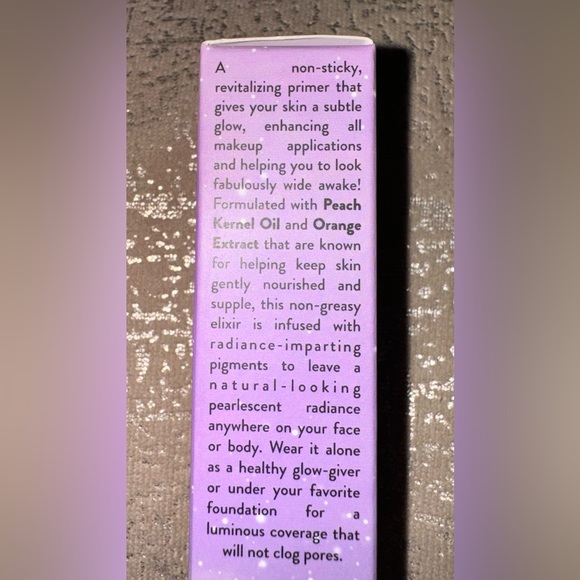 A non-sticky,
revitalizing primer that
gives your skin a subtle
glow, enhancing all
makeup applications
and helping you to look
fabulously wide awake!
Formulated with Peach
Kernel Oil and Orange
Extract that are known
for helping keep skin
gently nourished and
supple, this non-greasy
elixir is infused with
radiance-imparting
pigments to leave a
natural-looking
pearlescent radiance
anywhere on your face
or body. Wear it alone
as a healthy glow-giver
or under your favorite
foundation for a
luminous coverage that
will not clog pores.